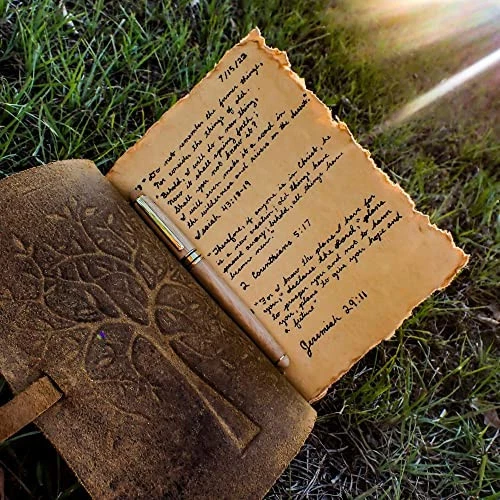 7/15/23
"Do not remember the former things,
Nor consider the things of old.
Behold, I will do a new thing,
Now it shall spring forth;
Shall you not know it?
I will even make a road in
the wilderness and rivers in the desert."
Isaiah 43:18-19
"Therefore, if anyone is in Christ, he
is a new creation; old things have
passed away; behold, all things have
become new."
2 Corinthians 5:17
"For I know the plans I have for
you," declares the Lord, "plans
to prosper you and not to harm
you, plans to give you hope and
a future."
Jeremiah 29:11